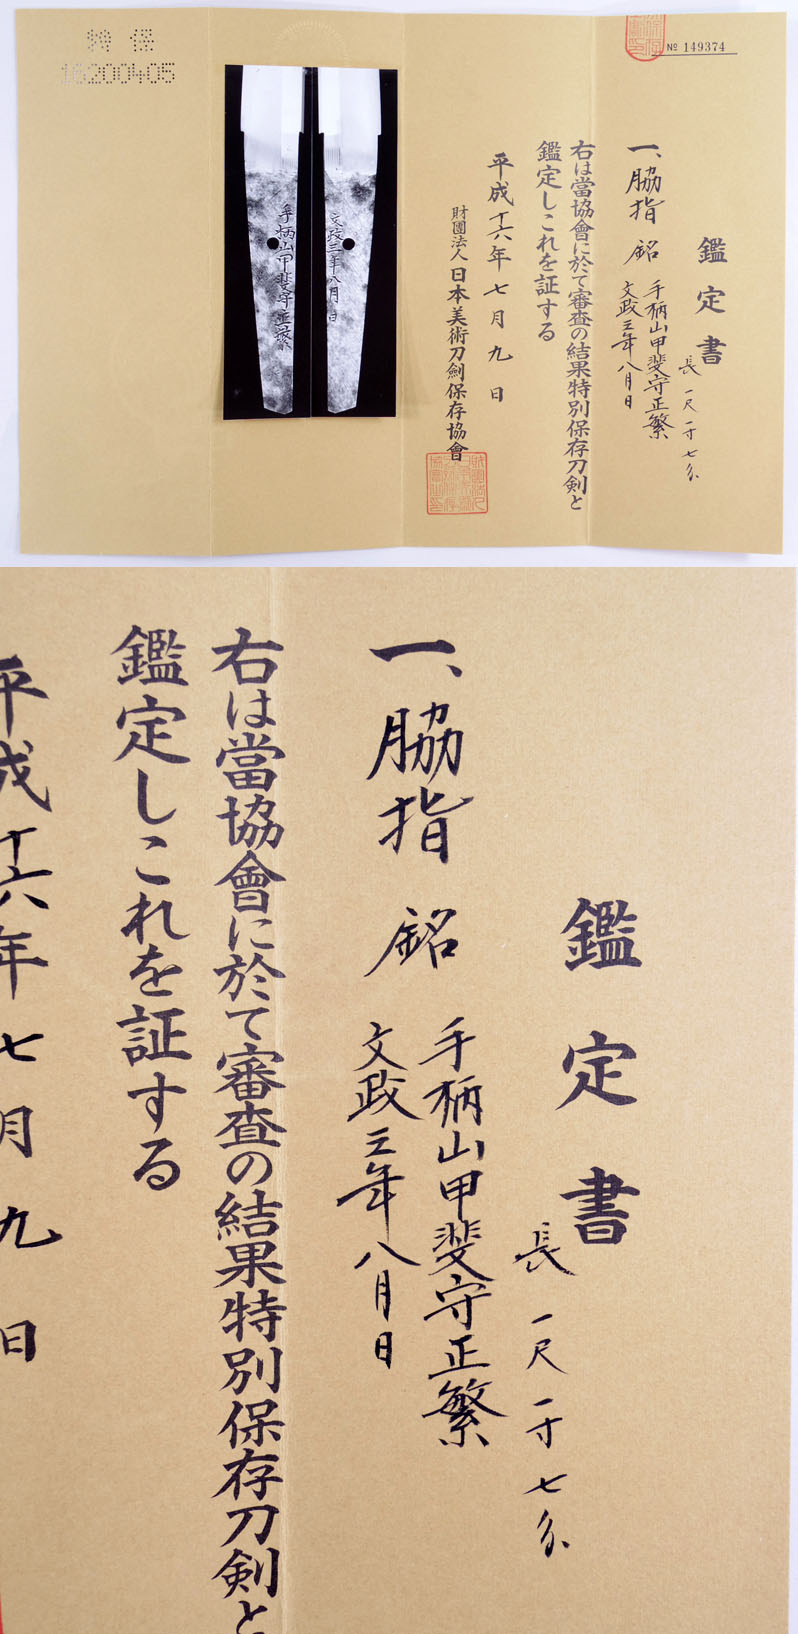 № 149374
鑑定書
長 一尺一寸七分
一、脇指 銘 手柄山甲斐守正繁
文政三年八月日
右は當協會に於て審査の結果特別保存刀剣と
鑑定しこれを証する
平成十六年七月九日
財團法人 日本美術刀劍保存協會
文政三年八月日
手柄山甲斐守正繁
特保
16200405
鑑定書
長 一尺一寸七分
一、脇指 銘 手柄山甲斐守正繁
文政三年八月日
右は當協會に於て審査の結果特別保存刀剣と
鑑定しこれを証する
平成十六年七月九日